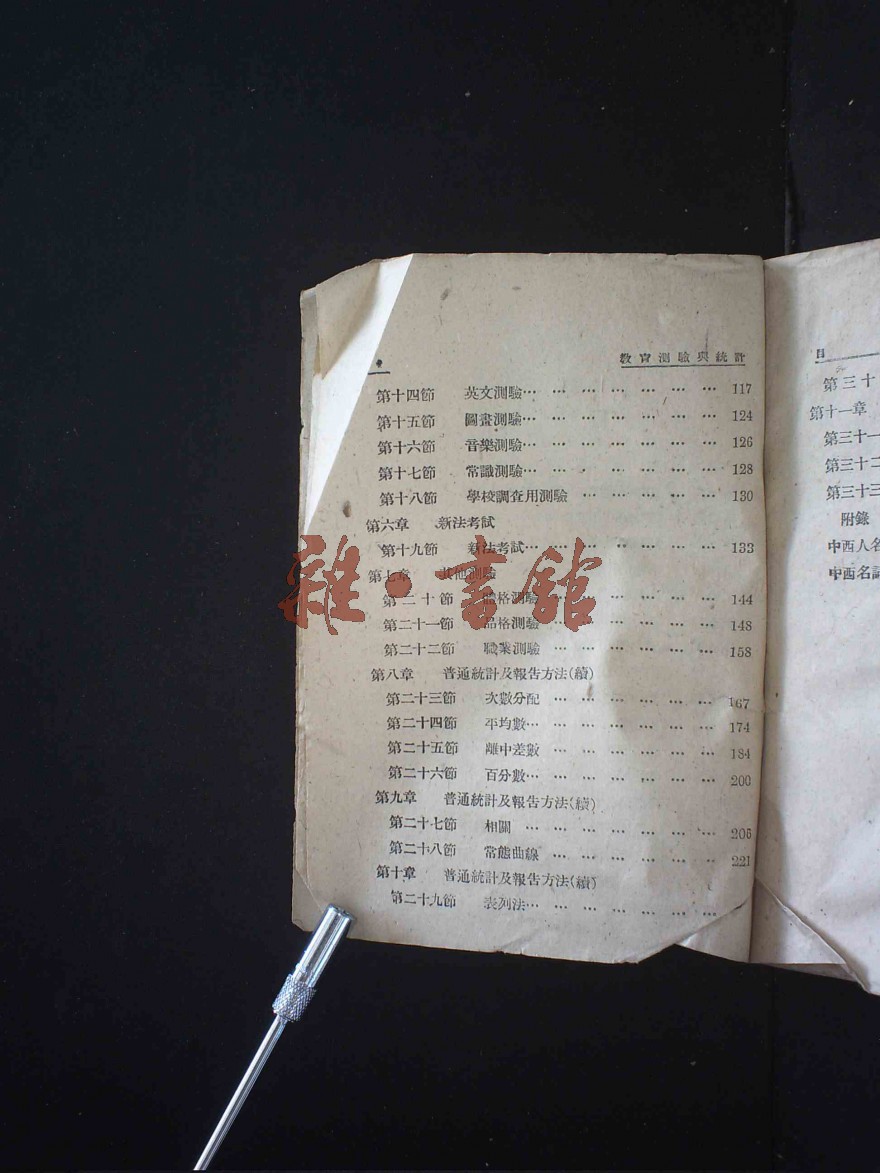 教育測驗與統計
第十四節 英文測驗… … … … … … … 117
第十五節 圖畫測驗… … … … … … … 124
第十六節 音樂測驗… … … … … … … 126
第十七節 常識測驗… … … … … … … 128
第十八節 學校調查用測驗 … … … … … 130
第六章 新法考試
第十九節 新法考試… … … … … … … 133
第七章 其他測驗
第二十節 測驗 … … … … … … 144
第二十一節 品格測驗 … … … … … … 148
第二十二節 職業測驗 … … … … … … 158
第八章 普通統計及報告方法(續)
第二十三節 次數分配 … … … … … … 167
第二十四節 平均數… … … … … … … 174
第二十五節 離中差數 … … … … … … 184
第二十六節 百分數… … … … … … … 200
第九章 普通統計及報告方法(續)
第二十七節 相關 … … … … … … … 205
第二十八節 常態曲線 … … … … … … 221
第十章 普通統計及報告方法(續)
第二十九節 表列法… … … … … … …
雜·書館
目
第三十
第十一章
第三十一
第三十二
第三十三
附錄
中西人名
中西名詞